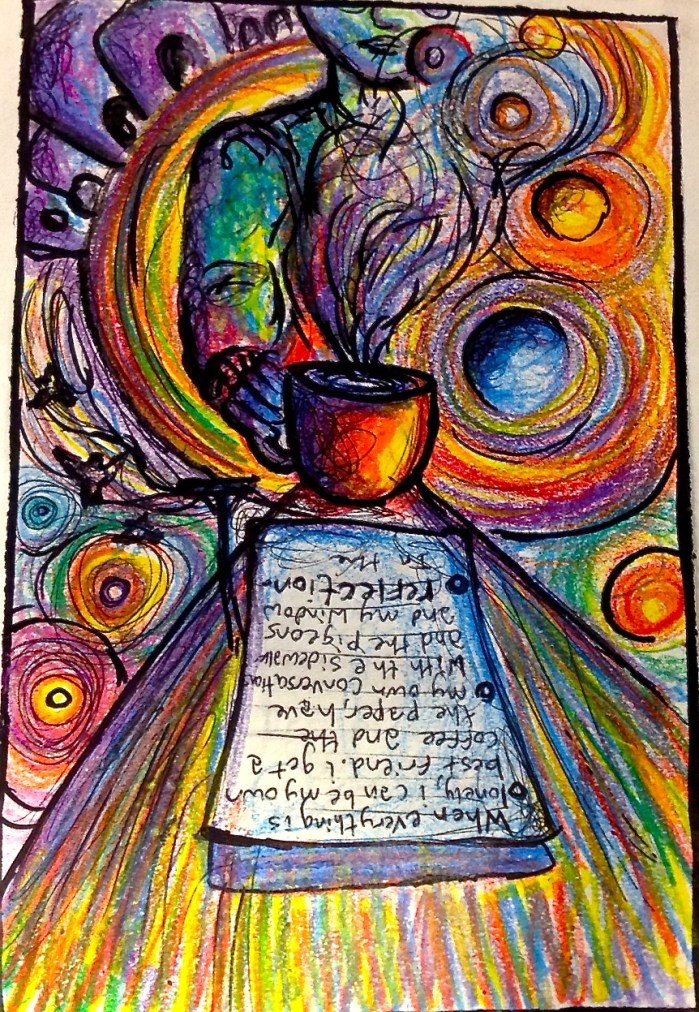 When everything is
lonely, i can be my own
best friend. i get a
coffee and the
the paper, have
my own conversations
with the sidewalk
and the pigeons
and my window
reflection.
In the